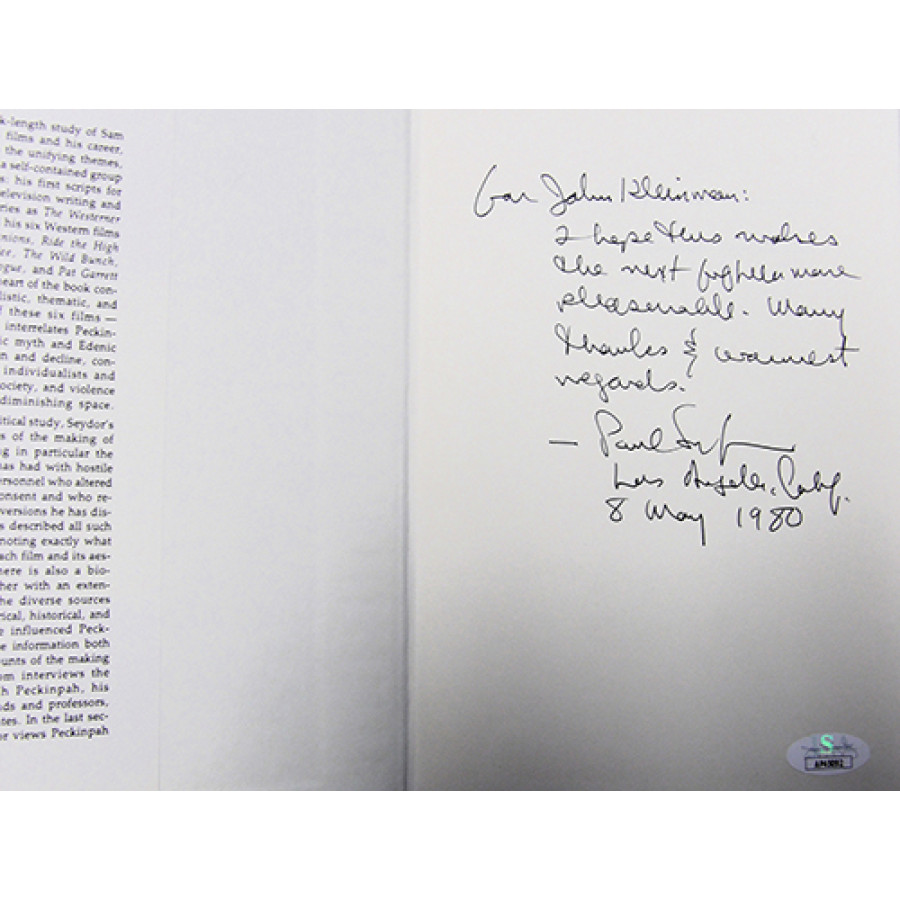 k-length study of Sam
films and his career,
the unifying themes,
a self-contained group
s: his first scripts for
elevision writing and
ries as The Westerner
his six Western films
nions, Ride the High
ee, The Wild Bunch,
ogue, and Pat Garrett
heart of the book con-
listic, thematic, and
f these six films —
interrelates Peckin-
ic myth and Edenic
n and decline, con-
individualists and
ociety, and violence
diminishing space.
itical study, Seydor's
s of the making of
ng in particular the
has had with hostile
ersonnel who altered
onsent and who re-
versions he has dis-
s described all such
noting exactly what
ach film and its aes-
here is also a bio-
her with an exten-
he diverse sources
rical, historical, and
e influenced Peck-
e information both
unts of the making
om interviews the
h Peckinpah, his
ds and professors,
tes. In the last sec-
or views Peckinpah
For John Kleinman:
I hope this makes
the next more
pleasurable. Many
thanks & warmest
regards.
— Paul Seydor
Los Angeles, Calif.
8 May 1980